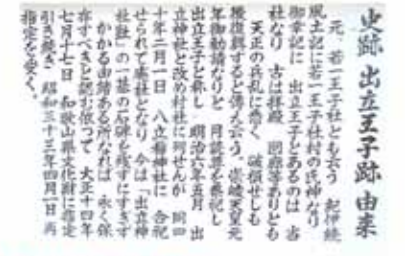 史跡 出立王子跡 由来
元、若一王子社とも云う 紀伊続
風土記に若一王子社村の氏神なり
御幸記に 出立王子とあるのは 当
社なり 古は拝殿 廻廊等ありとも
天正の兵乱に悉く 破損せしも
後復興すると傳え云う、崇峻天皇元
年御勧請なりと 月読尊を奉祀し
出立王子と称し 明治六年五月 出
立神社と改め村社に列せんが 同四
十年二月一日 八立稲神社に 合祀
せられて廃社となり 今は「出立神
社趾」の一基の石碑を残すにすぎず
かかる由緒ある所なれば 永く保
存すべきと認む依つて 大正十四年
七月十七日 和歌山県文化財に指定
引き続き 昭和三十三年四月一日 再
指定を受く。